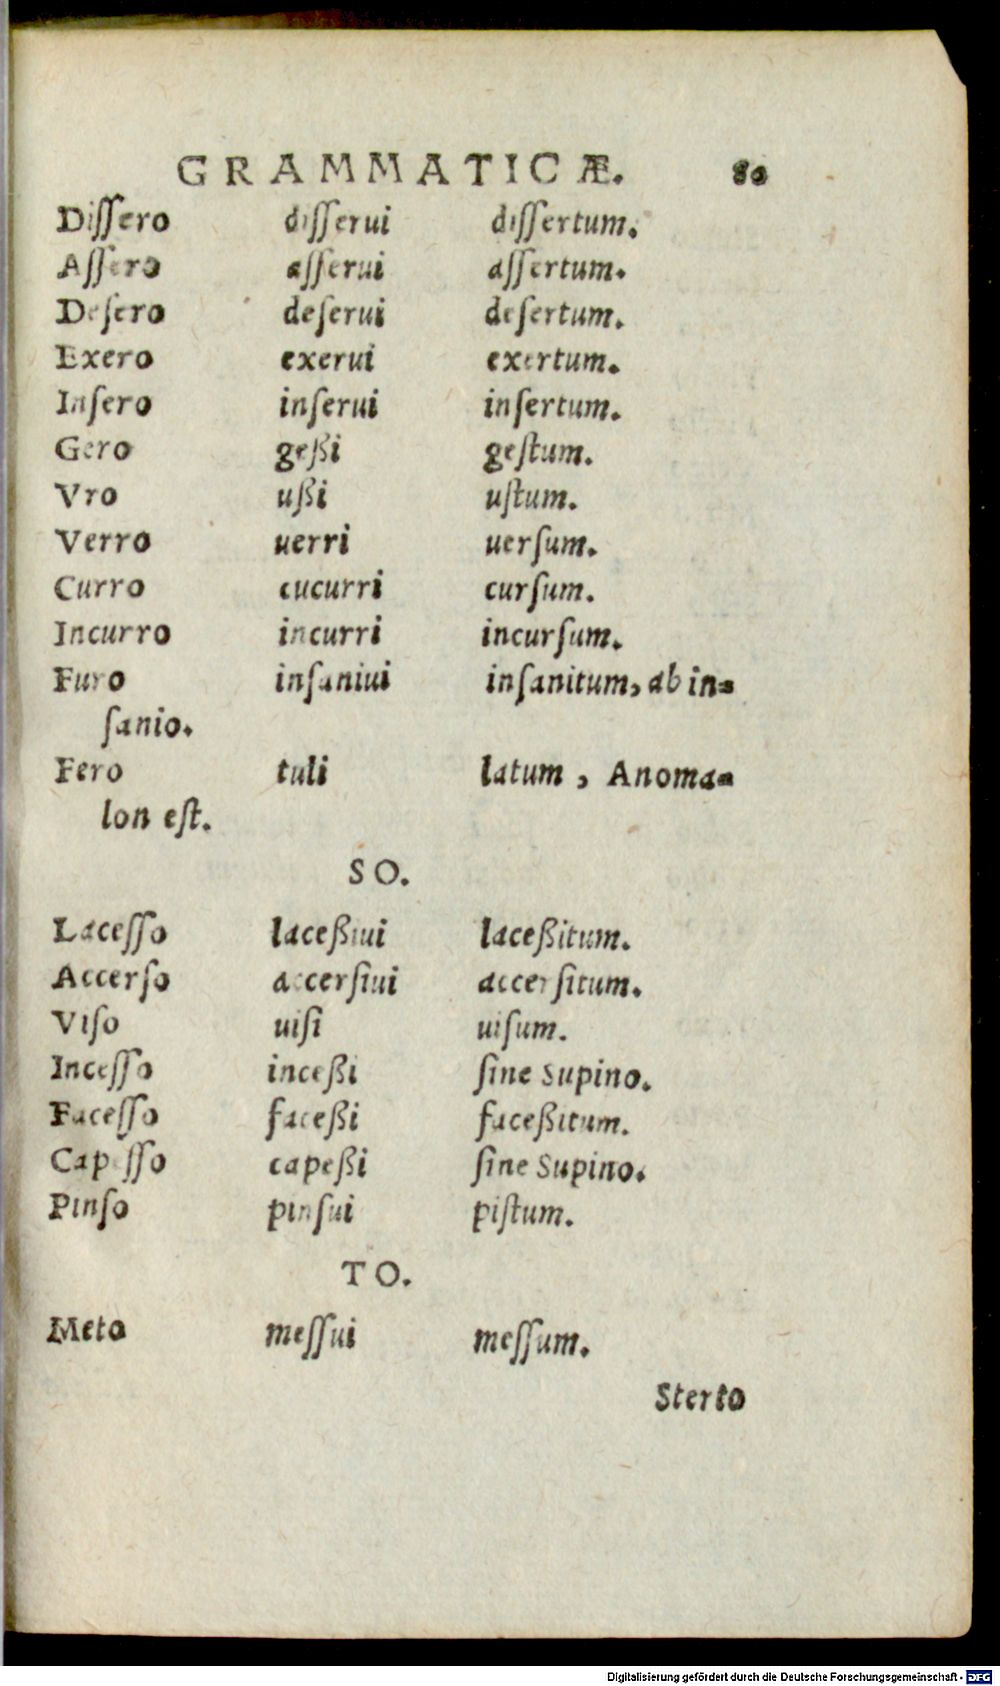 GRAMMATICÆ. 80
Diſſero diſſerui diſſertum.
Aſſero aſſerui aſſertum.
Deſero deſerui deſertum.
Exero exerui exertum.
Inſero inſerui inſertum.
Gero geßi geſtum.
Vro ußi uſtum.
Verro uerri uerſum.
Curro cucurri curſum.
Incurro incurri incurſum.
Furo inſaniui inſanitum, ab in-
ſanio.
Fero tuli latum, Anoma-
lon eſt.
SO.
Laceſſo laceßiui laceßitum.
Accerſo accerſiui accerſitum.
Viſo uiſi uiſum.
Inceſſo inceßi ſine Supino.
Faceſſo faceßi faceßitum.
Capeſſo capeßi ſine Supino.
Pinſo pinſui piſtum.
TO.
Meto meſſui meſſum.
Sterto
Digitalisierung gefördert durch die Deutsche Forschungsgemeinschaft - DFG